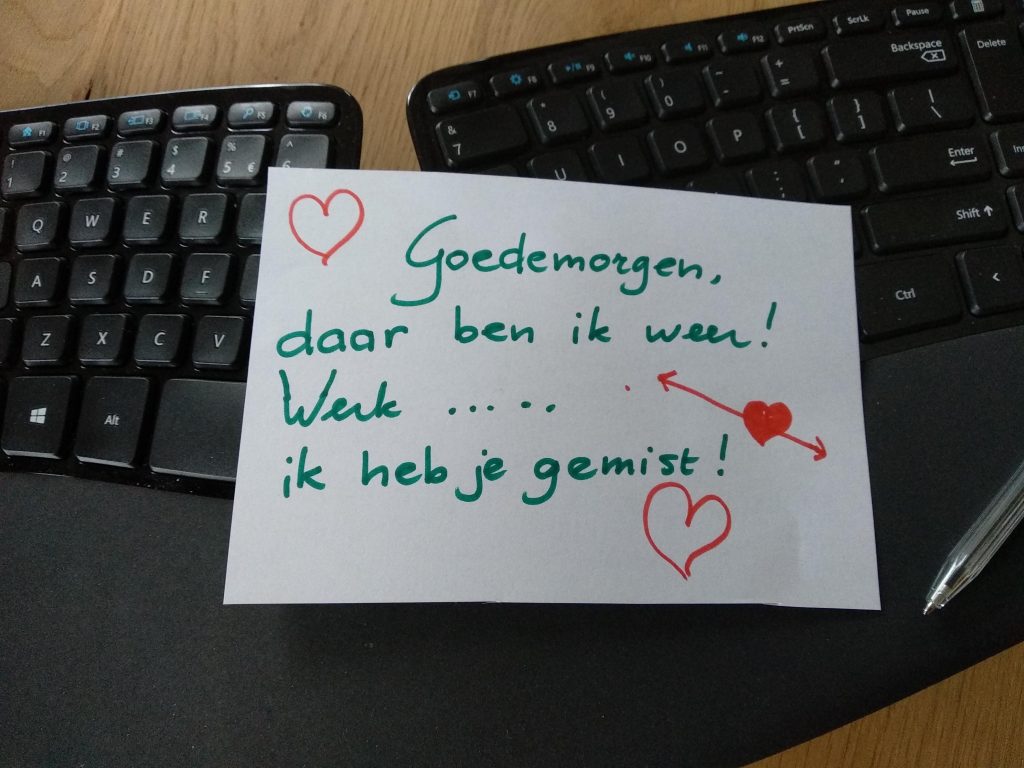 F1 F2 F3 F4 F5 F6
! 1 @ 2 # 3 $ 4 % 5 € ^ 6
Q W E R
A S D F
Z X C V
Alt
F7 F8 F9 F10 F11 F12 PrtScn ScrLk Pause
& 7 * 8 ( 9 ) 0 _ - + = Backspace Delete
U I O P { [ } ] | \
: ; " ' Enter Ins
Shift
Ctrl <
Goedemorgen,
daar ben ik weer!
Werk .....
ik heb je gemist!